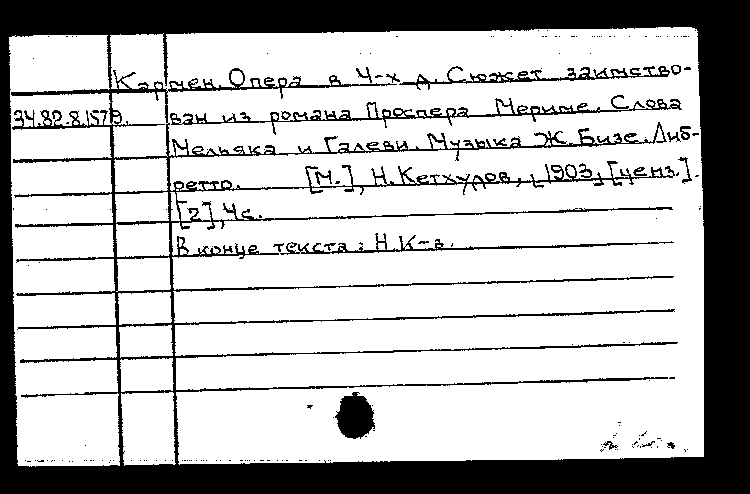 Кармен. Опера в 4-х д. Сюжет заимство-
34.82.8.1579. ван из романа Проспера Мериме. Слова
Мельяка и Галеви. Музыка Ж. Бизе. Либ-
ретто. [М.], Н. Кетхудов, 1903, [ценз.].
[2], 4с.
В конце текста: Н. К-в.